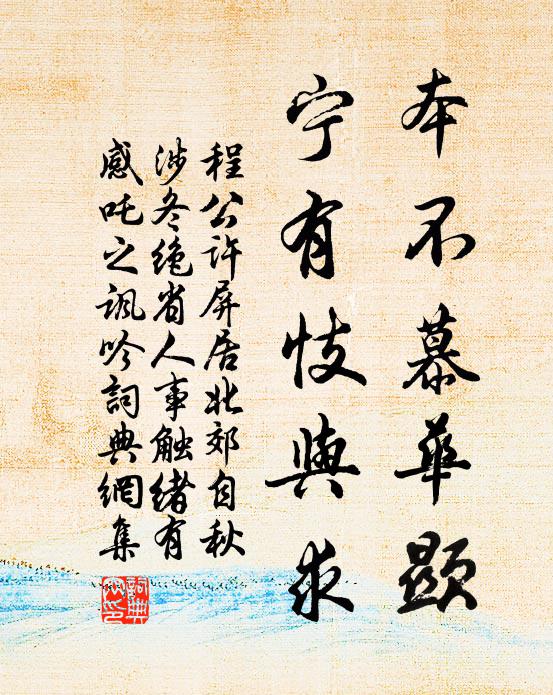 本不慕华顯
宁有忮與求
程公许屏居北郊自秋
涉冬绝省人事触绪有
感吒之讽吟詞典網集